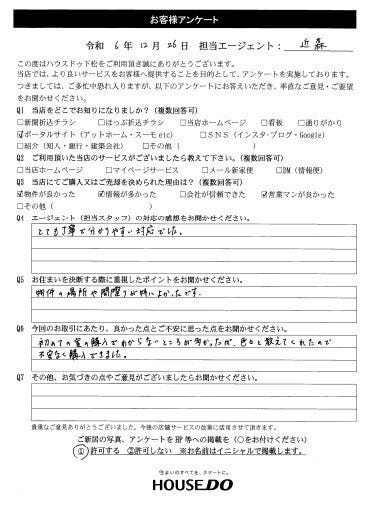 お客様アンケート
令和 6年 12月 26日 担当エージェント： 近森
この度はハウスドゥ下松をご利用頂き誠にありがとうございます。
当店では、より良いサービスをお客様へ提供することを目的として、アンケートを実施しております。
つきましては、ご多忙中恐れ入りますが、以下のアンケートにお答えいただき、率直なご意見・ご要望
をお聞かせください。
Q1 当店をどこでお知りになりましたか？（複数回答可）
□新聞折込チラシ □ほっぷ折込チラシ □当店ホームページ □看板 □通りがかり
☑ポータルサイト（アットホーム・スーモetc） □SNS（インスタ・ブログ・Google）
□紹介（知人・銀行・建築会社） □その他（ ）
Q2 ご利用頂いた当店のサービスがございましたら教えて下さい。（複数回答可）
□当店ホームページ □マイページサービス □メール新家便 □DM（情報便）
Q3 当店にてご購入又はご売却を決められた理由は？（複数回答可）
☑物件が良かった ☑情報が多かった □会社が信頼できた ☑営業マンが良かった
□その他（ ）
Q4 エージェント（担当スタッフ）の対応の感想をお聞かせください。
とても丁寧で分かりやすい対応でした。
Q5 お住まいを決断する際に重視したポイントをお聞かせください。
物件の場所や間取りが特によかったです。
Q6 今回のお取引にあたり、良かった点とご不安に思った点をお聞かせください。
初めての家の購入でわからないところが多かったが、色々と教えてくれたので
不安なく購入できました。
Q7 その他、お気づきの点やご意見がございましたらお聞かせください。
貴重なご意見ありがとうございました。今後の店舗サービスの改善に活用させて頂きます。
ご新居の写真、アンケートをHP等への掲載を（○をお付けください）
①許可する ②許可しない ※お名前はイニシャルで掲載します。
住まいのすべてを、スマートに。
HOUSEDO